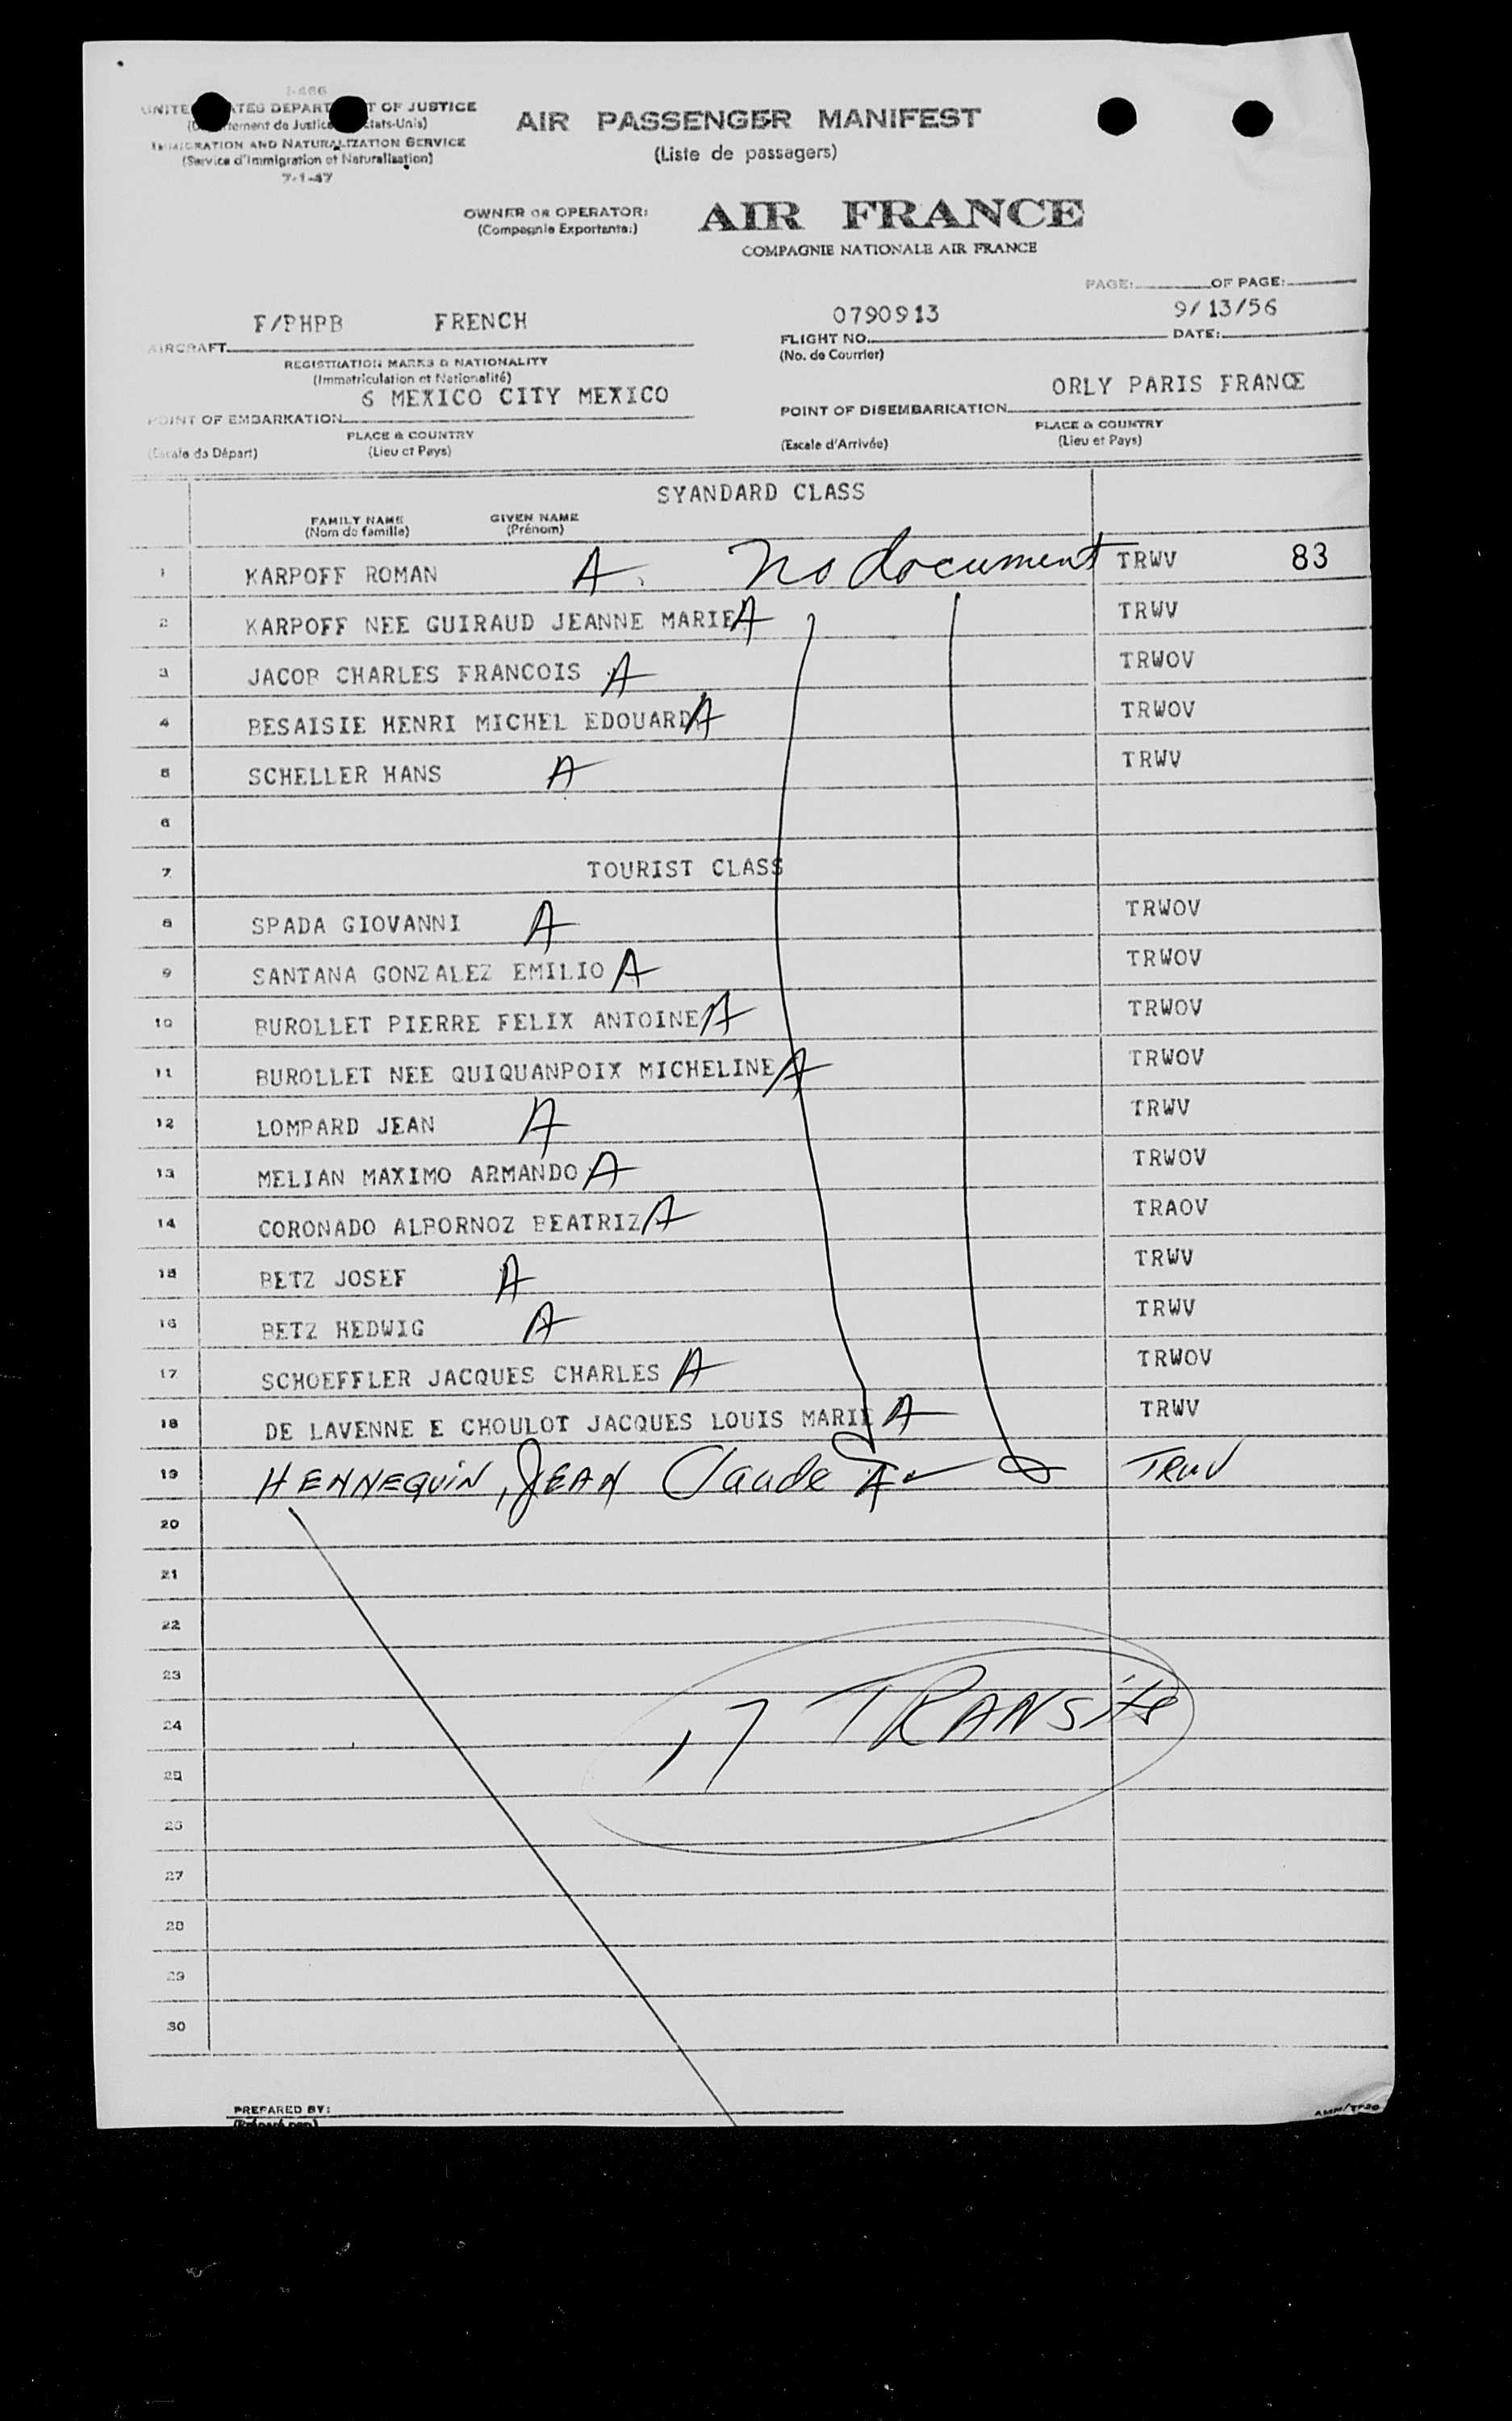 I-466
UNITED STATES DEPARTMENT OF JUSTICE
(Département de Justice Etats-Unis)
IMMIGRATION AND NATURALIZATION SERVICE
(Service d'Immigration et Naturalisation)
7-1-47
AIR PASSENGER MANIFEST
(Liste de passagers)
OWNER OR OPERATOR:
(Compagnie Exportante:)
AIR FRANCE
COMPAGNIE NATIONALE AIR FRANCE
PAGE: OF PAGE:
F/PHPB FRENCH 0790913 9/13/56
AIRCRAFT FLIGHT NO. DATE:
REGISTRATION MARKS & NATIONALITY (No. de Courrier)
(Immatriculation et Nationalité)
6 MEXICO CITY MEXICO ORLY PARIS FRANCE
POINT OF EMBARKATION POINT OF DISEMBARKATION
PLACE & COUNTRY PLACE & COUNTRY
(Escale de Départ) (Lieu et Pays) (Escale d'Arrivée) (Lieu et Pays)
SYANDARD CLASS
FAMILY NAME GIVEN NAME
(Nom de famille) (Prénom)
1 KARPOFF ROMAN A. No document TRWV 83
2 KARPOFF NEE GUIRAUD JEANNE MARIE A TRWV
3 JACOB CHARLES FRANCOIS A TRWOV
4 BESAISIE HENRI MICHEL EDOUARD A TRWOV
5 SCHELLER HANS A TRWV
6
7 TOURIST CLASS
8 SPADA GIOVANNI A TRWOV
9 SANTANA GONZALEZ EMILIO A TRWOV
10 BUROLLET PIERRE FELIX ANTOINE A TRWOV
11 BUROLLET NEE QUIQUANPOIX MICHELINE A TRWOV
12 LOMBARD JEAN A TRWV
13 MELIAN MAXIMO ARMANDO A TRWOV
14 CORONADO ALBORNOZ BEATRIZ A TRAOV
15 BETZ JOSEF A TRWV
16 BETZ HEDWIG A TRWV
17 SCHOEFFLER JACQUES CHARLES A TRWOV
18 DE LAVENNE E CHOULOT JACQUES LOUIS MARIE A TRWV
19 HENNEQUIN, JEAN Claude A TRWV
20
21
22
23
24 17 TRANSITS
25
26
27
28
29
30
PREPARED BY:
(Préparé par)